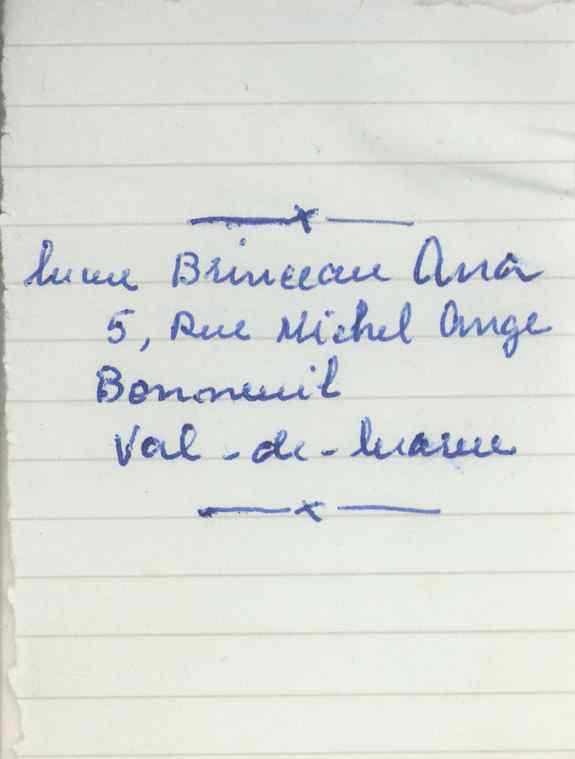 Mme Brinceau Ana
5, Rue Michel Ange
Bonneuil
Val-de-Marne